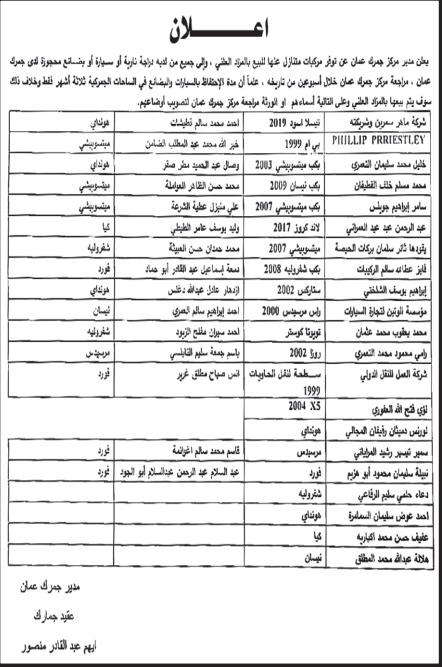 اعلان
يعلن مدير مركز جمرك عمان عن توفر مركبات متنازل عنها للبيع بالمزاد العلني ، والى جميع من لديه دراجة نارية أو سيارة أو بضائع محجوزة لدى جمرك
عمان ، مراجعة مركز جمرك عمان خلال أسبوعين من تاريخه ، علماً أن مدة الإحتفاظ بالسيارات والبضائع في الساحات الجمركية ثلاثة أشهر فقط وخلاف ذلك
سوف يتم بيعها بالمزاد العلني وعلى التالية أسماءهم او الورثة مراجعة مركز جمرك عمان لتصويب أوضاعهم.
شركة ماهر سمرين وشريكته تيسلا اسود 2019 احمد محمد سالم قطيشات هونداي
PHILLIP PRRIESTLEY بي ام 1999 خير الله محمد عبد المطلب الضامن ميتسوبيشي
خليل محمد سليمان التعمري بكب ميتسوبيشي 2003 وصال عبد الحميد مطر صقر هونداي
محمد مسلم خلف القطيفان بكب نيسان 2009 محمد حسن الظاهر العواملة ميتسوبيشي
سامر إبراهيم جويلس بكب ميتسوبيشي 2007 علي منيزل عطية الشرعة ميتسوبيشي
عبد الرحمن عبد عبد العمراني لاند كروز 2017 وليد يوسف عامر الطيطي كيا
يقودها ثائر سلمان بركات الحيصة ميتسوبيشي 2007 محمد حمدان حسن العبيثة شفروليه
فايز عطاالله سالم الركيبات بكب شفروليه 2008 دمعة إسماعيل عبد القادر أبو حماد فورد
إبراهيم يوسف الشلختي ستاركس 2002 ازدهار عادل عبدالله دغلس هونداي
مؤسسة الوتين لتجارة السيارات راس مرسيدس 2000 احمد إبراهيم سالم العمري نيسان
محمد يعقوب محمد عثمان تويوتا كوستر احمد سيران مفلح الزيود شفروليه
رامي محمود محمد التعمري روزا 2002 باسم جمعة سليم النابلسي مرسيدس
شركة العمل للنقل الدولي سطحة لنقل الحاويات انس صباح مطلق غرير فورد
1999
لؤي فتح الله العقوري X5 2004
لورنس دميثان رفيفان المجالي هونداي
سمير تيسير رشيد المزايني مرسيدس قاسم محمد سالم اغوانمة فورد
نبيلة سليمان محمود أبو هزيم فورد عبد السلام عبد الرحمن عبدالسلام أبو الجود فورد
دعاء حلمي سليم الرفاعي شفروليه
احمد عوض سليمان السمامرة هونداي
عفيف حسن محمد اكباريه كيا
هلالة عبدالله محمد المطلق نيسان
مدير جمرك عمان
عقيد جمارك
ايهم عبد القادر منصور